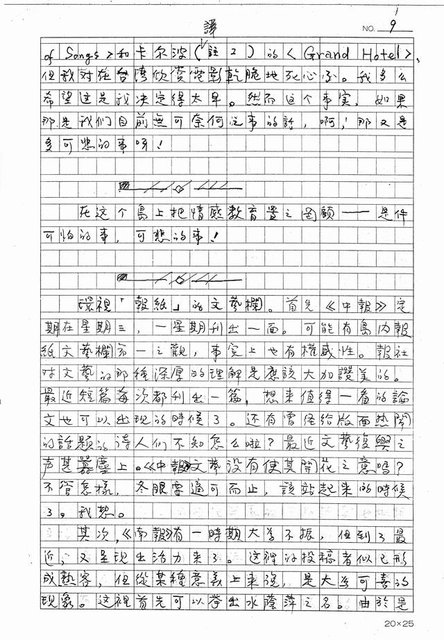 譯
NO. 9
of Songs＞和卡尔波（註2）的＜Grand Hotel＞，
但我对在台湾欣赏電影乾脆地死心了。我多么
希望这是我决定得太早。然而这个事实，如果
那是我们目前無可奈何之事的話，啊，那又是
多可悲的事呀！
在这个島上把情感教育置之罔顧——是件
可怕的事，可悲的事！
環視「報紙」的文藝欄。首先《中報》定
期在星期三，一星期刊出一面。可能有島内報
紙文藝欄第一之觀，事实上也有權威性。報社
对文藝的那種深厚的理解是應該大加讚美的。
最近短篇每次都刊出一篇，想來值得一看的論
文也可以出现的時候了。还有曾経给版面熱鬧
的話題的诗人们不知怎么啦？最近文藝復興之
声甚囂塵上。《中報》文藝没有使其開花之意嗎？
不管怎樣，冬眠要適可而止，該站起来的時候
了。我想。
其次，《南報》有一時期大為不振，但到了最
近，又呈现出活力来了。这裡的投稿者似已形
成熟客，但從某種意義上来説，是大為可喜的
现象。这裡首先可以举出水蔭萍之名。由於是
20×25